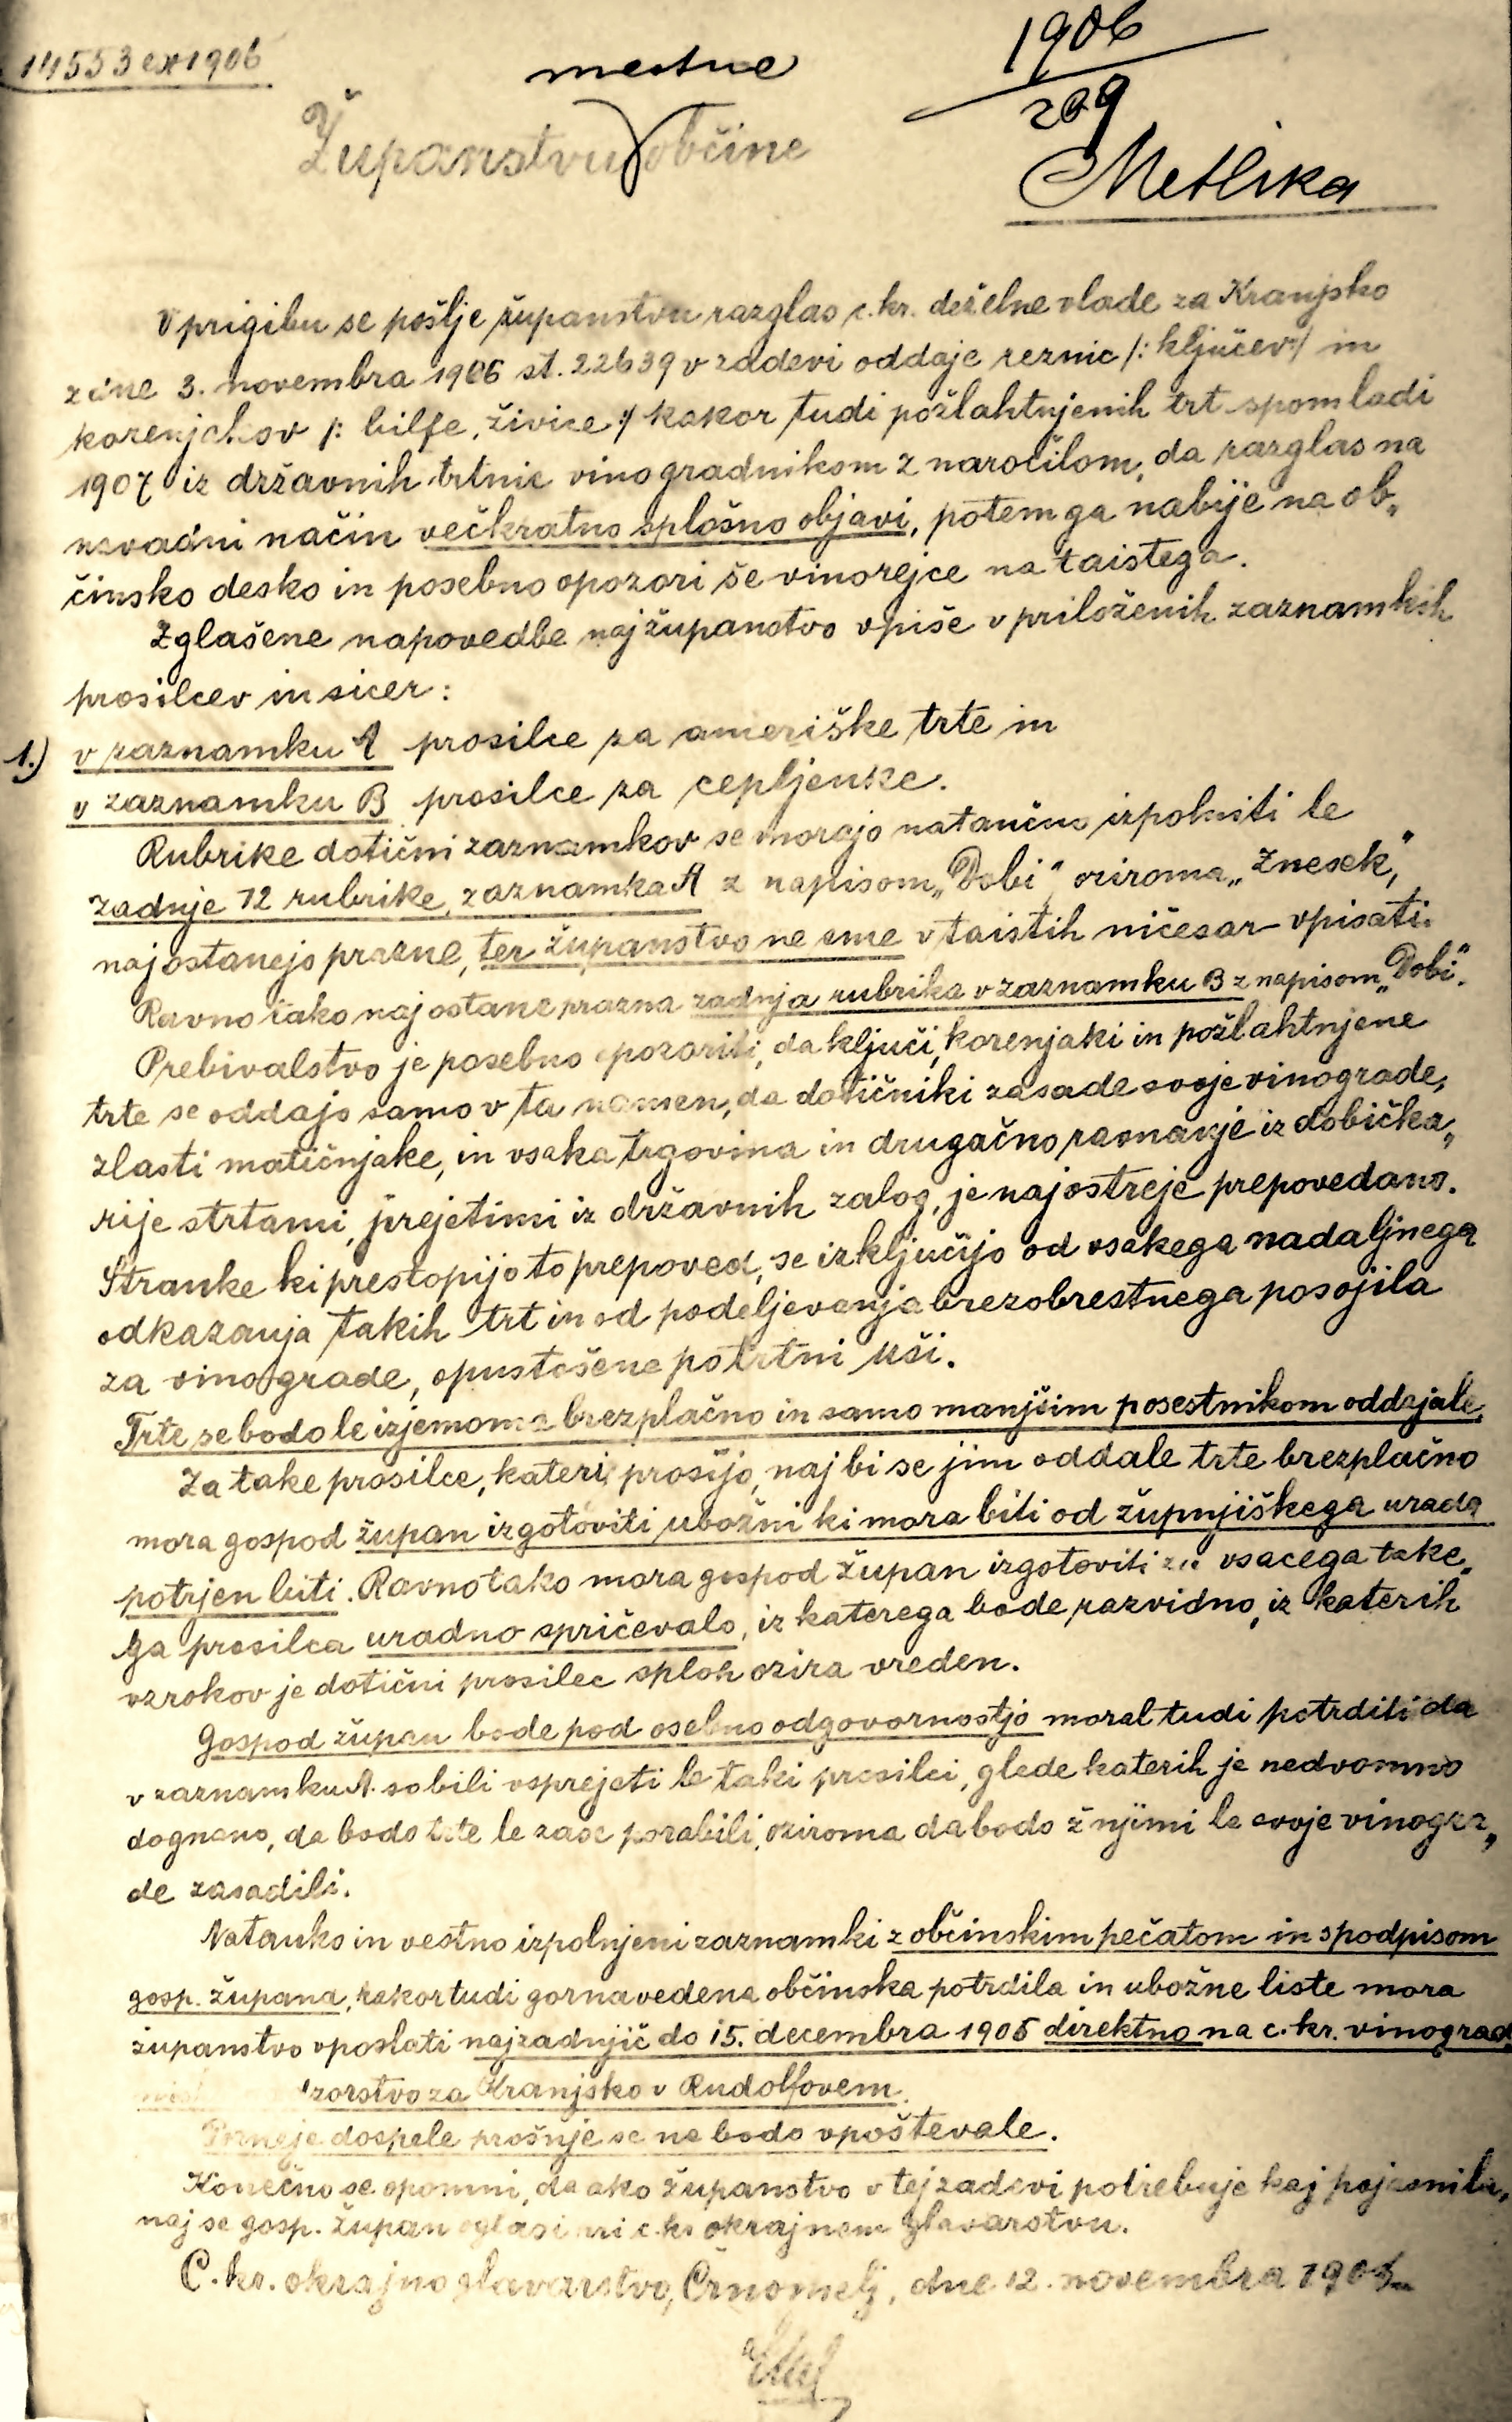 14553 ex 1906
mestne
1906
209
Županstvu občine
Metlika
V prigibu se pošlje županstvu razglas c. kr. deželne vlade za Kranjsko
z dne 3. novembra 1906 št. 22639 v zadevi oddaje reznic /: ključev :/ in
korenjakov /: bilfe, živice :/ kakor tudi požlahtnjenih trt spomladi
1907 iz državnih trtnic vinogradnikom z naročilom, da razglas na
navadni način večkratno splošno objavi, potem ga nabije na ob„
činsko desko in posebno opozori še vinorejce na taistega.
Zglašene napovedbe naj županstvo vpiše v priloženih zaznamkih
prosilcev in sicer:
1.) v zaznamku A prosilce za ameriške trte in
v zaznamku B prosilce za cepljenke.
Rubrike dotični zaznamkov se morajo natančno izpolniti le
zadnje 12 rubrike, zaznamka A z napisom „Dobi“ oziroma „Znesek“,
naj ostanejo prazne, ter županstvo ne sme v taistih ničesar vpisati.
Ravno tako naj ostane prazna zadnja rubrika v zaznamku B z napisom „Dobi“.
Prebivalstvo je posebno opozoriti, da ključi, korenjaki in požlahtnjene
trte se oddajo samo v ta namen, da dotičniki zasade svoje vinograde,
zlasti matičnjake, in vsaka trgovina in drugačno ravnanje iz dobička„
rije s trtami, prejetimi iz državnih zalog, je najostreje prepovedano.
Stranke ki prestopijo to prepoved, se izključijo od vsakega nadaljnega
odkazanja takih trt in od podeljevanja brezobrestnega posojila
za vinograde, opustošene po trtni uši.
Trte se bodo le izjemoma brezplačno in samo manjšim posestnikom oddajale.
Za take prosilce, kateri prosijo, naj bi se jim oddale trte brezplačno
mora gospod župan izgotoviti ubožni ki mora biti od župnjiškega urada
potrjen biti. Ravnotako mora gospod župan izgotoviti za vsacega take„
ga prosilca uradno spričevalo, iz katerega bode razvidno, iz katerih
vzrokov je dotični prosilec sploh ozira vreden.
Gospod župan bode pod osebno odgovornostjo moral tudi potrditi da
v zaznamku A. so bili vsprejeti le taki prosilci, glede katerih je nedvomno
dognano, da bodo trte le zase porabili, oziroma da bodo ž njimi le svoje vinogra„
de zasadili.
Natanko in vestno izpolnjeni zaznamki z občinskim pečatom in s podpisom
gosp. župana, kakor tudi gornavedena občinska potrdila in ubožne liste mora
županstvo vposlati najzadnjič do 15. decembra 1906 direktno na c. kr. vinograd„
zorstvo za Kranjsko v Rudolfovem.
Pozneje dospele prošnje se ne bodo vpoštevale.
Konečno se opomni, da ako županstvo v tej zadevi potrebuje kaj pojasnila,
naj se gosp. župan oglasi pri c. kr. okrajnem glavarstvu.
C. kr. okrajno glavarstvo, Črnomelj, dne 12. novembra 1906.